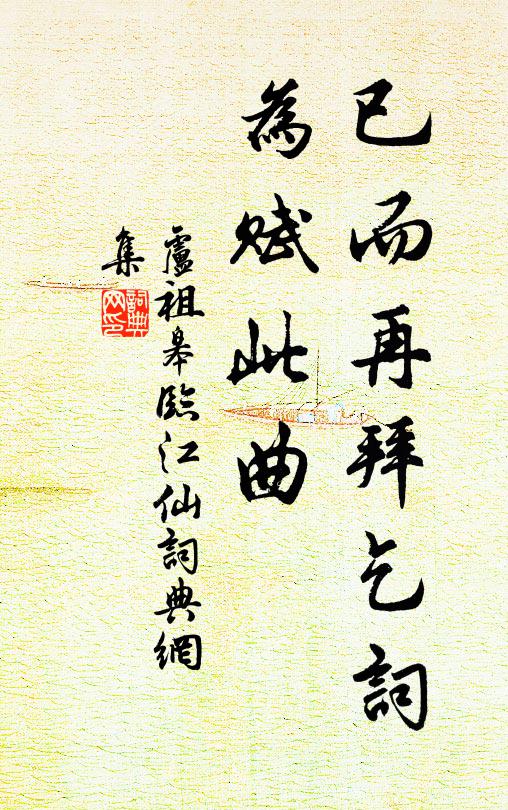 已而再拜乞詞
為賦此曲
盧祖皋臨江仙詞典網
集
詞典
网印